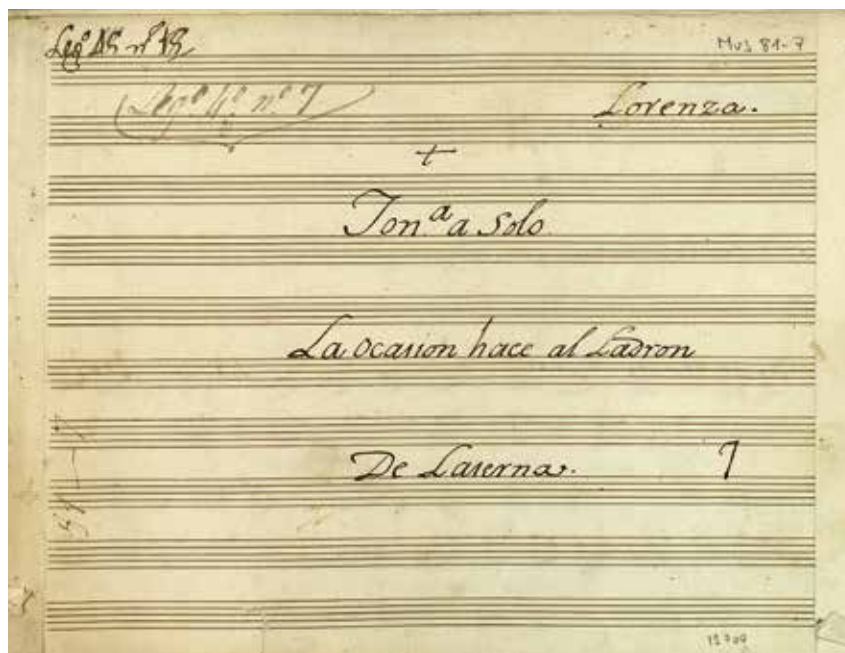 Mus 81-7
Leg.º 4º nº 7
Lorenza.
+
Ton.ª a Solo
La ocasion hace al Ladron
De Laserna.
7